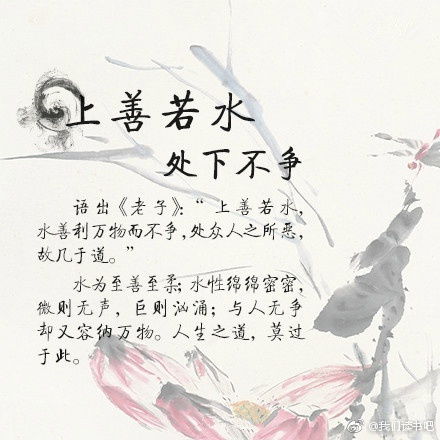 上善若水
处下不争
语出《老子》:“上善若水,
水善利万物而不争,处众人之所恶,
故几于道。”
水为至善至柔;水性绵绵密密,
微则无声,巨则汹涌;与人无争
却又容纳万物。人生之道,莫过
于此。
@我们读书吧